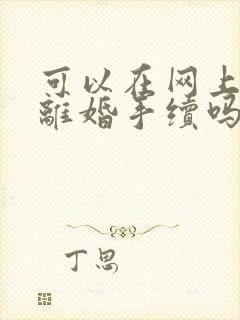 可以在网上
離婚手续吗
丁思